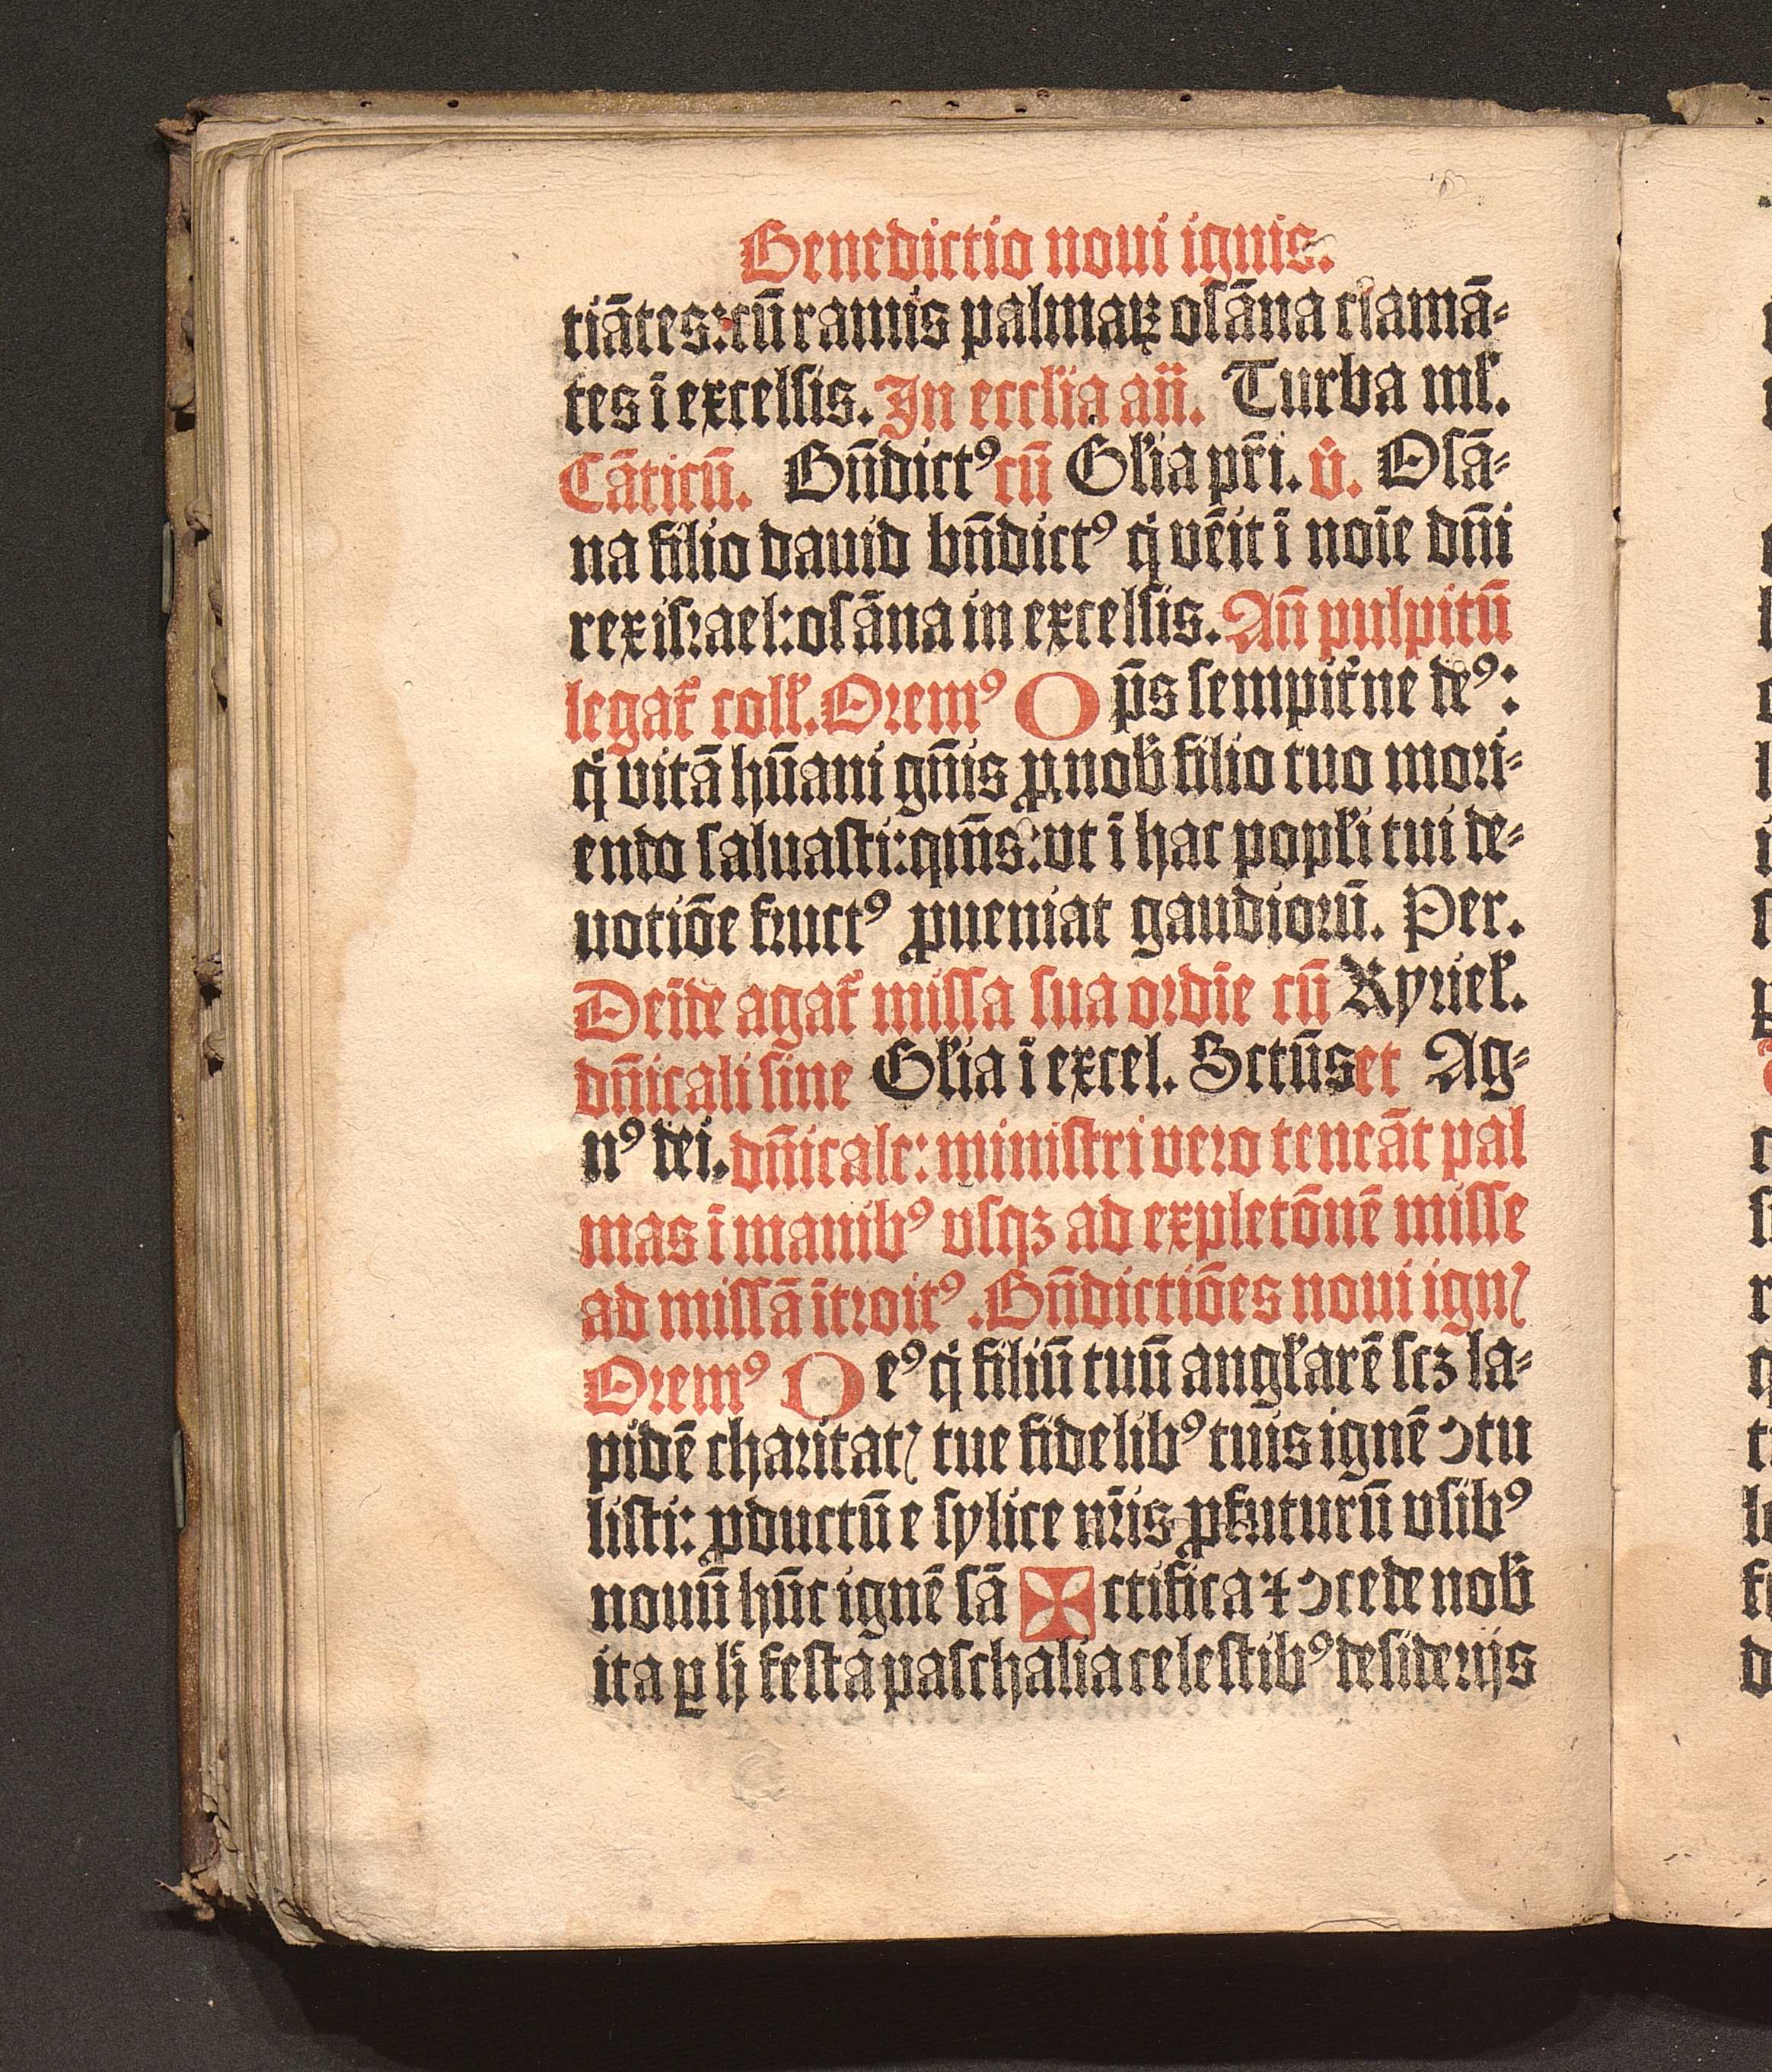 Benedictio noui ignis.
tiātes:cū ramis palmaꝝ osāna clamā⸗
tes ī excelsis. In eccl̓ia añ. Turba ml̓.
Cāticū. Bñdictꝰ cū Gl̓ia pr̄i. v̓. Osā⸗
na filio dauid bñdictꝰ q̇ vēit ī noīe dñi
rex iſrael:oſāna in excelſis. Añ pulpitū
legat̓ coll̓. Oremꝰ O p̄s ſempit̓ne deꝰ:
q̇ vitā hūani gñis ꝓ nob̓ filio tuo mori⸗
endo ſaluaſti:qm̄s:vt ī hac popl̓i tui de⸗
uotiōe fructꝰ ꝓueniat gaudiorū. Per.
Deīde agat̓ miſſa ſua ordīe cū Kyriel̓.
dñicali ſine Gl̓ia ī excel. Sctūs et Ag⸗
nꝰ dei. dñicale: miniſtri vero teneāt pal
mas ī manibꝰ vſqꝫ ad expletōnē miſſe
ad miſſā ītroitꝰ. Bñdictiōes noui ignꝭ
Oremꝰ D eꝰ q̇ filiū tuū angl̓arē ſcꝫ la⸗
pidē charitatꝭ tue fidelibꝰ tuis ignē ↄtu
liſti: ꝓductū e ſylice nr̄is ꝓfuturū vſibꝰ
nouū hūc ignē ſā ✠ ctifica ⁊ ↄcede nob̓
ita ꝑ h̓ feſta paſchalia celeſtibꝰ deſiderijs